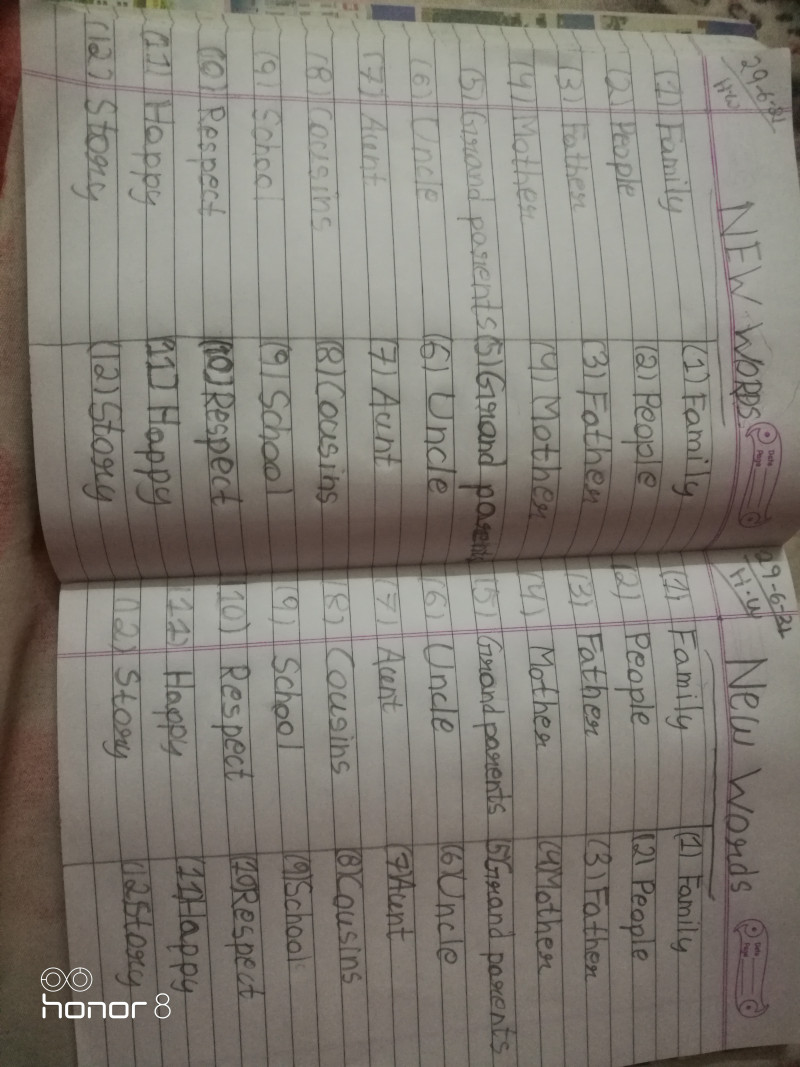 29-6-21
H.W
NEW WORDS
Date
Page
(1) Family (1) Family
(2) People (2) People
(3) Father (3) Father
(4) Mother (4) Mother
(5) Grand parents (5) Grand parents
(6) Uncle (6) Uncle
(7) Aunt (7) Aunt
(8) Cousins (8) Cousins
(9) School (9) School
(10) Respect (10) Respect
(11) Happy (11) Happy
(12) Story (12) Story
29-6-21
H.W
New Words
Date
Page
(1) Family (1) Family
(2) People (2) People
(3) Father (3) Father
(4) Mother (4 Mother
(5) Grand parents 5 Grand parents
(6) Uncle (6 Uncle
(7) Aunt (7 Aunt
(8) Cousins (8 Cousins
(9) School (9 School
10) Respect 10 Respect
(11) Happy (11 Happy
(12) Story (12 Story
honor 8